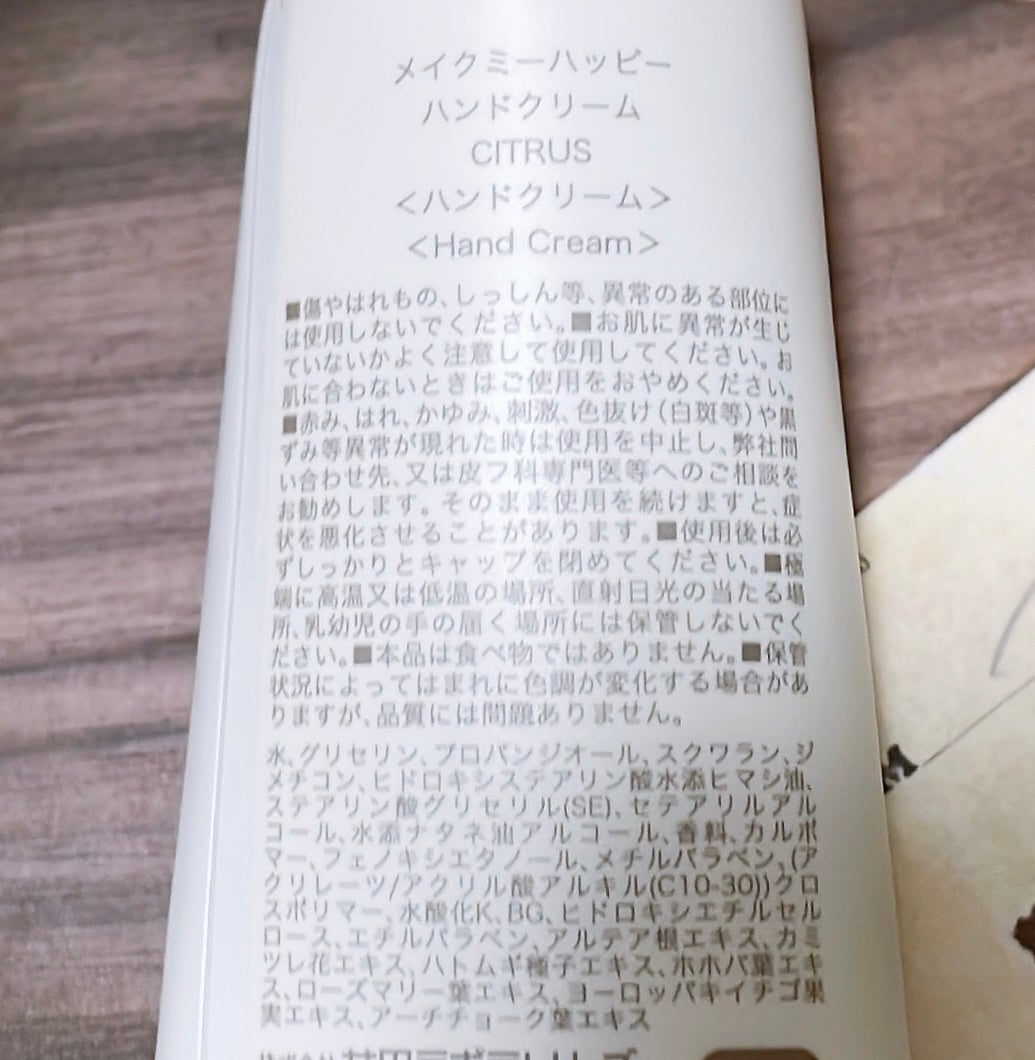 メイクミーハッピー
ハンドクリーム
CITRUS
<ハンドクリーム>
<Hand Cream>
■傷やはれもの、しっしん等、異常のある部位に
は使用しないでください。■お肌に異常が生じ
ていないかよく注意して使用してください。お
肌に合わないときはご使用をおやめください。
■赤み、はれ、かゆみ、刺激、色抜け(白斑等)や黒
ずみ等異常が現れた時は使用を中止し、弊社問
い合わせ先、又は皮フ科専門医等へのご相談を
お勧めします。そのまま使用を続けますと、症
状を悪化させることがあります。■使用後は必
ずしっかりとキャップを閉めてください。■極
端に高温又は低温の場所、直射日光の当たる場
所、乳幼児の手の届く場所には保管しないでく
ださい。■本品は食べ物ではありません。■保管
状況によってはまれに色調が変化する場合があ
りますが、品質には問題ありません。
水、グリセリン、プロパンジオール、スクワラン、ジ
メチコン、ヒドロキシステアリン酸水添ヒマシ油、
ステアリン酸グリセリル(SE)、セテアリルアル
コール、水添ナタネ油アルコール、香料、カルボ
マー、フェノキシエタノール、メチルパラベン、(ア
クリレーツ/アクリル酸アルキル(C10-30))クロ
スポリマー、水酸化K、BG、ヒドロキシエチルセル
ロース、エチルパラベン、アルテア根エキス、カミ
ツレ花エキス、ハトムギ種子エキス、ホホバ葉エキ
ス、ローズマリー葉エキス、ヨーロッパキイチゴ果
実エキス、アーチチョーク葉エキス